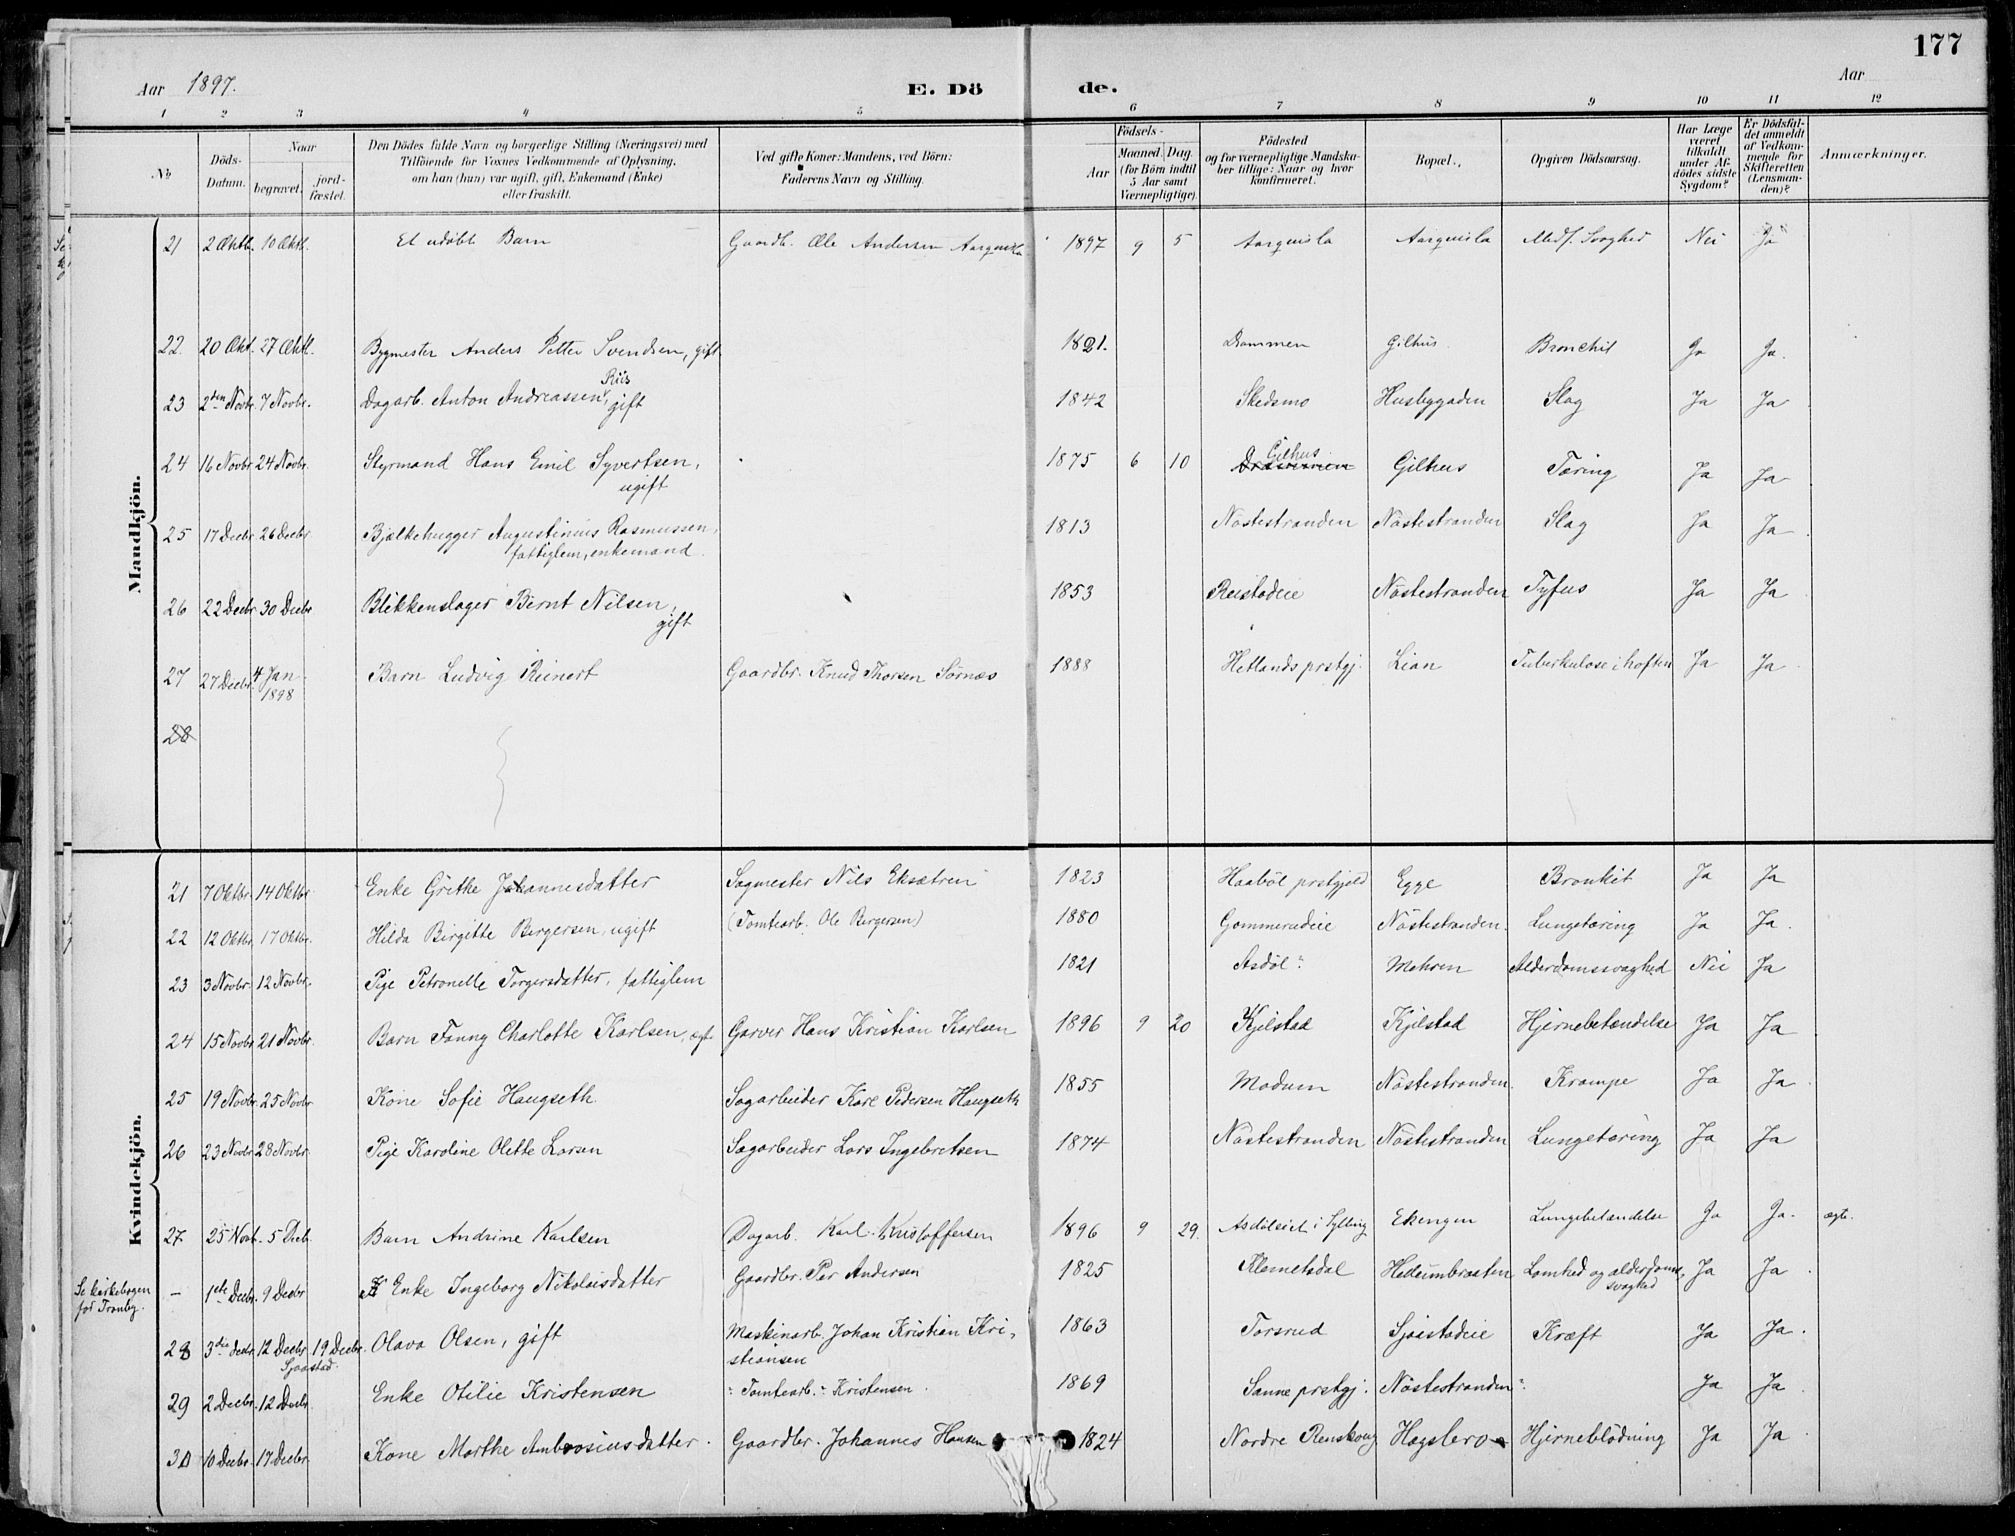 177
Aar 1897. E. Dö de. Aar
1 2 3 4 5 6 7 8 9 10 11 12
No
Döds-Datum.
Naar
begravet. jordfæstet.
Den Dödes fulde Navn og borgerlige Stilling (Næringsvei) med
Tilföiende för Voxnes Vedkommende af Oplysning,
om han (hun) var ugift, gift, Enkemand (Enke)
eller fraskilt.
Ved gifte Koner: Mandens, ved Börn:
Faderens Navn og Stilling.
Födsels-
Aar Maaned. Dag.
(for Børn indtil
5 Aar samt
Værnepligtige)
Födested
og for værnepligtige Mandska-
ber tillige: Naar og hvor
konfirmeret.
Bopæl.
Opgiven Dödsaarsag.
Har Læge
været
tilkaldt
under Af-
dödes sidste
Sygdom?
Er Dödsfal-
det anmeldt
af Vedkom-
mende for
Skifteretten
(Lensman-
den)?
Anmærkninger.
Mandkjön.
21 2 Oktb. 10 Oktb. Et udøbt Barn Gaardb. Ole Andersen Aarquisla 1897 9 5 Aarquisla Aarquisla Medf. Svaghed Nei Ja
22 20 Okt. 27 Oktb. Bygmester Anders Petter Svendsen, gift 1821. Drammen Gilhus Bronchit Ja Ja.
Riis
23 2den Novbr. 7 Novbr. Dagarb. Anton Andreassen, gift 1842 Skedsmo Husbygaden Slag Ja Ja
Gilhus
24 16 Novbr. 24 Novbr. Styrmand Hans Emil Syvertsen, 1875 6 10 Drammen Gilhus Tæring Ja Ja
ugift
25 17 Decbr 26 Decbr Bjælkehugger Augustinius Rasmussen, 1813 Nöstestranden Nöstestranden Slag Ja Ja
fattiglem, enkemand.
26 22 Decbr 30 Decbr Blikkenslager Bernt Nilsen, 1853 Reistadeie Nöstestranden Tyfus Ja Ja
gift
27 27 Decbr 4 Jan 1898 Barn Ludvig Reinert Gaardbr. Knud Thorsen Sörnæs 1888 Hetlands prstgj. Lian Tuberkulose i hoften Ja Ja
28
Kvindekjön.
21 7 Oktbr. 14 Oktbr Enke Grethe Johannesdatter Sagmester Nils Eksætren 1823 Haaböl prstgjeld Egge Bronkit Ja Ja
22 12 Oktbr. 17 Oktbr. Hilda Birgitte Bergersen, ugift (Tomtearb. Ole Bergersen) 1880 Gommerudeie Nöstestranden. Lungetæring Ja Ja.
23 3 Novbr. 12 Novbr. Pige Petronelle Torgersdatter, fattiglem 1821 Asdöl Mohren Alderdomssvaghed Nei Ja
24 15 Novbr 21 Novbr. Barn Fanny Charlotte Karlsen, ægt Garver Hans Kristian Karlsen 1896 9 20 Kjilstad Kjilstad Hjernebetændelse Ja Ja
25 19 Novbr. 25 Novbr Kone Sofie Haugseth. Sagarbeider Karl Pedersen Haugseth 1855 Modum Nöstestranden. Krampe Ja Ja
26 23 Novbr 28 Novbr Pige Karoline Olette Larsen Sagarbeider Lars Ingebretsen 1874 Nöstestranden Nöstestranden Lungetæring Ja Ja
27 25 Novb. 5 Decb. Barn Andrine Karlsen Dagarb. Karl Kristoffersen 1896 9 29. Asdöleiet i Sylling Ekengen Lungebetændelse Ja Ja ægte.
Se kirkebogen
for Tranby.
- 1ste Decbr. 9 Decbr Enke Ingeborg Nikolaisdatter Gaardbr. Per Andersen 1825 Klemetsdal Hellumbraaten Lamhed og alderdoms- Ja Ja
svaghed
28 3die Decbr. 12 Decbr 19 Decbr. Olava Olsen, gift Maskinarb. Johan Kristian Kri- 1863 Torsrud Sjöistadeie Kræft Ja Ja.
Sjaastad. stiansen
29 2 Decbr. 12 Decbr Enke Otilie Kristensen Tomtearb. Kristensen 1869 Sanne prstgj. Nöstestranden Ja Ja
30 10 Decbr. 17 Decbr Kone Marthe Ambrosiusdatter. Gaardbr. Johannes Hansen 1824 Nordre Renskoug Hagslero Hjerneblödning Ja Ja